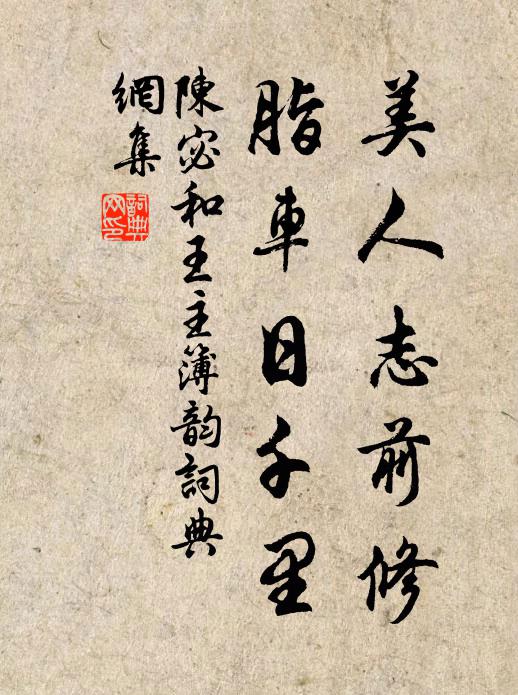 美人志前修
脂車日千里
陳宓和王主簿韵詞典
網集
詞典
网印